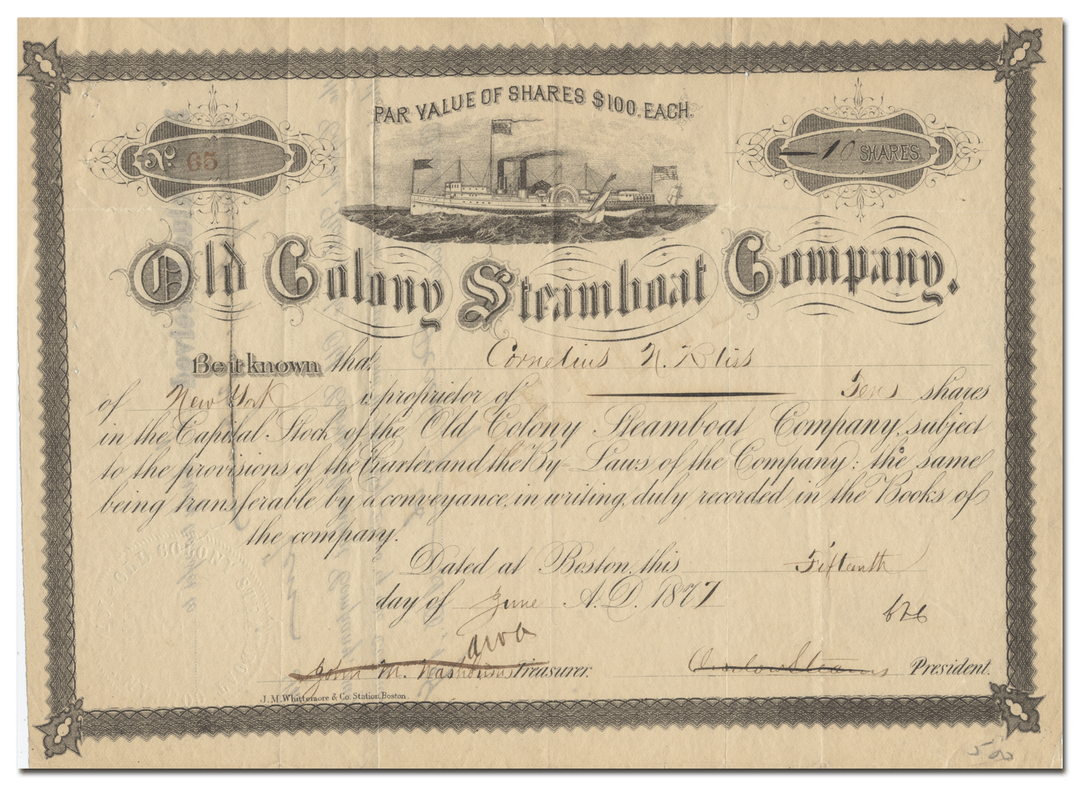 PAR VALUE OF SHARES $100. EACH.
No. 65
10 SHARES.
Old Colony Steamboat Company.
Be it known that Cornelius N. Bliss
of New York is proprietor of Ten shares
in the Capital Stock of the Old Colony Steamboat Company, subject
to the provisions of the Charter, and the By-Laws of the Company: the same
being transferable by a conveyance, in writing, duly recorded in the Books of
the company.
Dated at Boston, this Fifteenth
day of June A.D. 1877
John M. Washburn Treasurer.
Onslow Stearns President.
J. M. Whittemore & Co. Station. Boston.
500